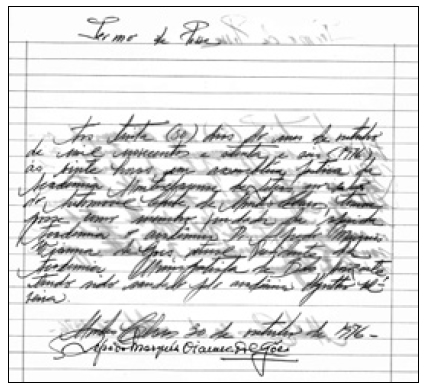 Termo de Posse
Aos trinta (30) dias do mes de outubro
de mil novecentos e setenta e seis (1976),
às vinte horas em assembléia festiva da
Academia Montesclarense de Letras, no salão
do Automóvel Clube de Montes Claros, tomou
posse como membro da
Academia o acadêmico Dr. Alfredo Marques
Vianna de Góes, atual Presidente da
Academia Municipalista de
tendo sido saudado pelo acadêmico
Montes Claros 30 de outubro de 1976 -
Alfredo Marques Vianna de Góes